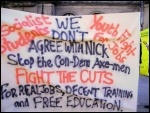 Socialist
Students
Youth Fight
For Jobs
WE
DON'T
AGREE WITH NICK
Stop the Con-Dem Axe-men
FIGHT THE CUTS
FOR REAL JOBS, DECENT TRAINING
and FREE EDUCATION.